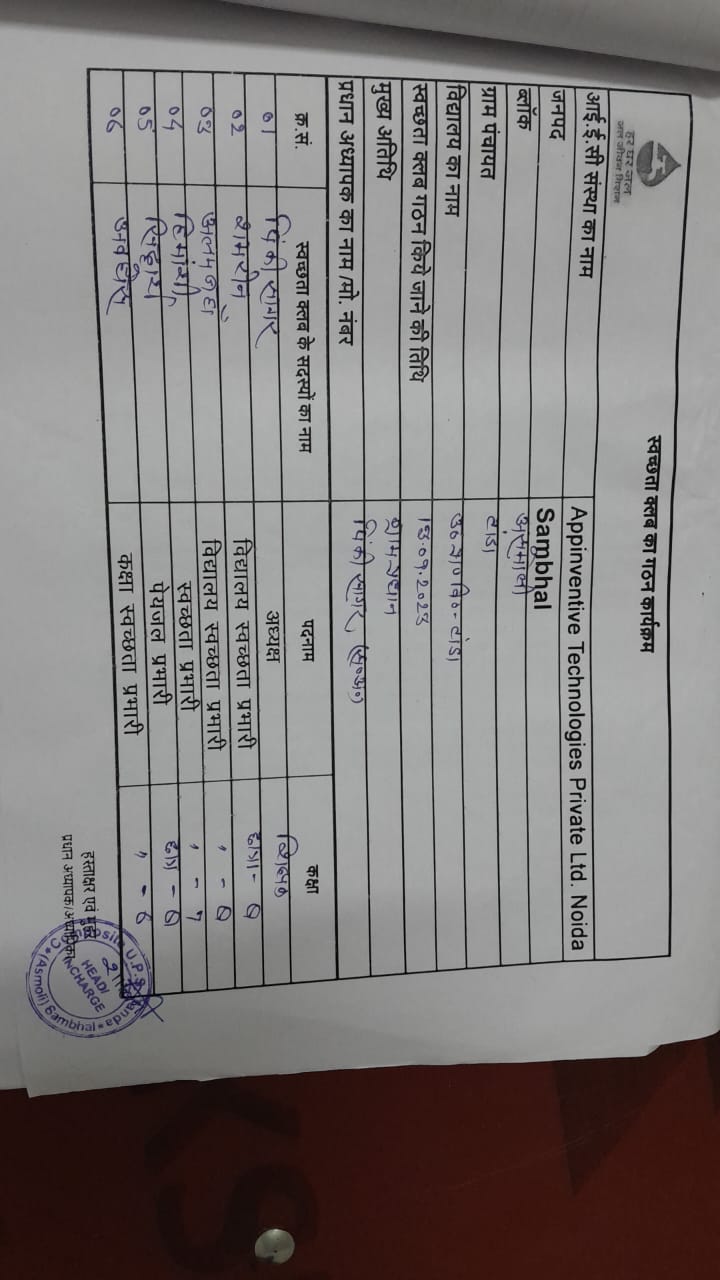 हर घर जल
जल जीवन मिशन
स्वच्छता क्लब का गठन कार्यक्रम
आई.ई.सी संस्था का नाम Appinventive Technologies Private Ltd. Noida
जनपद Sambhal
ब्लॉक असमोली
ग्राम पंचायत टांडा
विद्यालय का नाम उ० प्रा० वि०- टांडा
स्वच्छता क्लब गठन किये जाने की तिथि
मुख्य अतिथि ग्राम प्रधान
प्रधान अध्यापक का नाम /मो. नंबर पिंकी सागर
क्र.सं. स्वच्छता क्लब के सदस्यों का नाम पदनाम कक्षा
01 पिंकी सागर अध्यक्ष शिक्षक
02 विद्यालय स्वच्छता प्रभारी छात्रा - 8
03 विद्यालय स्वच्छता प्रभारी " - 8
04 हिमांशी स्वच्छता प्रभारी " - 7
05 पेयजल प्रभारी छात्र - 8
06 कक्षा स्वच्छता प्रभारी " - 6
हस्ताक्षर एवं मुहर
प्रधान अध्यापक/अध्यापिका
Composite U.P.S. Tanda
HEAD/
INCHARGE
(Asmoli) Sambhal